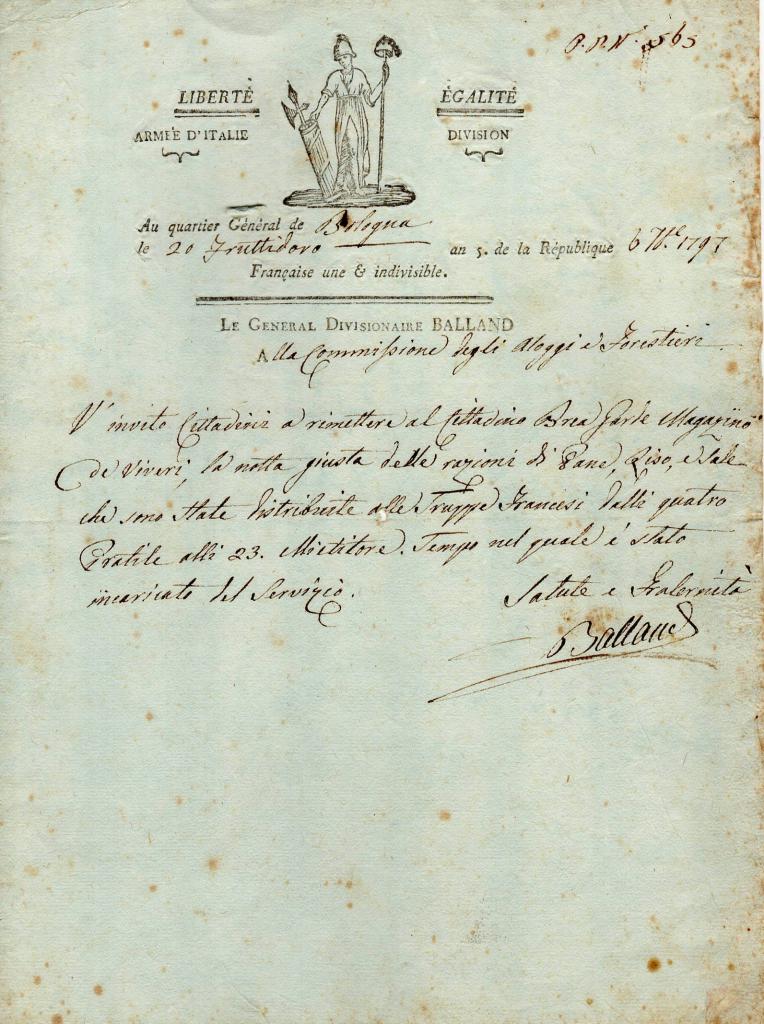 P. P. N. 565
LIBERTÉ ÉGALITÉ
ARMÉE D'ITALIE DIVISION
Au quartier Général de Bologna
le 20 Fruttidoro an 5. de la République 6 7bre 1797
Française une & indivisible.
LE GENERAL DIVISIONAIRE BALLAND
Alla Commissione degli Aloggi e Forestieri
V' invito Cittadini a rimettere al Cittadino Brea Garde Magazino
de Viveri, la notta giusta delle razioni di Pane, Riso, e Sale
che sono state distribuite alle Truppe Francesi dalli quatro
Pratile alli 23. Mietitore. Tempo nel quale è stato
incaricato del Servizio.
Salute e Fraternità
Balland